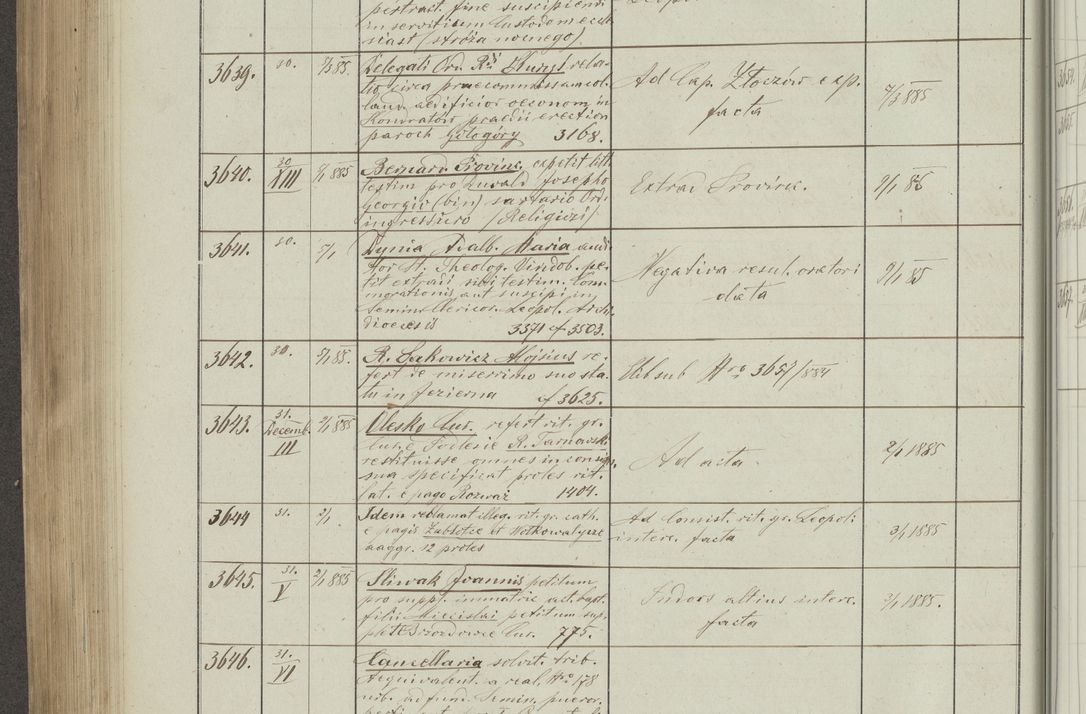 pertract. fine suscipiendi
in servitium Custodem eccle
siast (stróża nocnego).
3639. 30. 7/3 885. Delegati Ord. Rdi Kuryś rela-
tio circa praecommissam col-
laud. aedificior oeconom in
Kondratów praedii erection
paroch Gołogóry 3168.
Ad Cap. Złoczów exp.
facta
7/3 885
3640. 30 XIII 2/1 885 Bernard. Provinc. expetit litt
testim pro Josepho
Georgio (bin) sartario Ord.
ingressuro (Religiozi)
Extrad Provinc.
2/1 85
3641. 30. 5/1 Dynia Adalb. Maria audi
tor St. Theolog. Vindob. pe-
tit extradi sibi testim. Com
morationis aut suscipi in
Semin. Clericor. Leopol. Archi
dioecesis 3371 et 3503.
Negativa resol. oratori
data
9/1 85
3642. 30. 5/1 85. R. Łukowicz Alojsius re-
fert de miserrimo suo sta-
tu in Jezierna et 3625.
Ut sub Nro 3657/884
3643. 31. Decemb. III 2/1 885 Olesko Cur. refert rit. gr.
Cur. e Podlesie R. Tarnawski
restituisse omnes in consig.
sua specificat proles rit.
lat. e pago Rozważ 1404.
Ad acta.
2/1 1885
3644 31. 2/1 Idem reclamat illeg. rit. gr. cath.
e pagis Zabłotce et Wołkowatyce
aaggr. 12 proles
Ad Consist. rit. gr. Leopol:
interc. facta
3/1 1885
3645. 31. V 2/1 885 Śliwak Joannis petitum
pro suppl. immatric act. bapt.
filii Miecislai petitum sup-
plet Brzozdowce Cur. 775.
Indors altius interc.
facta
2/1 1885.
3646. 31. VI Cancellaria solvit. trib.
Aequivalent. a real. Nro 178
urb. ad fund. Semin. pueror.